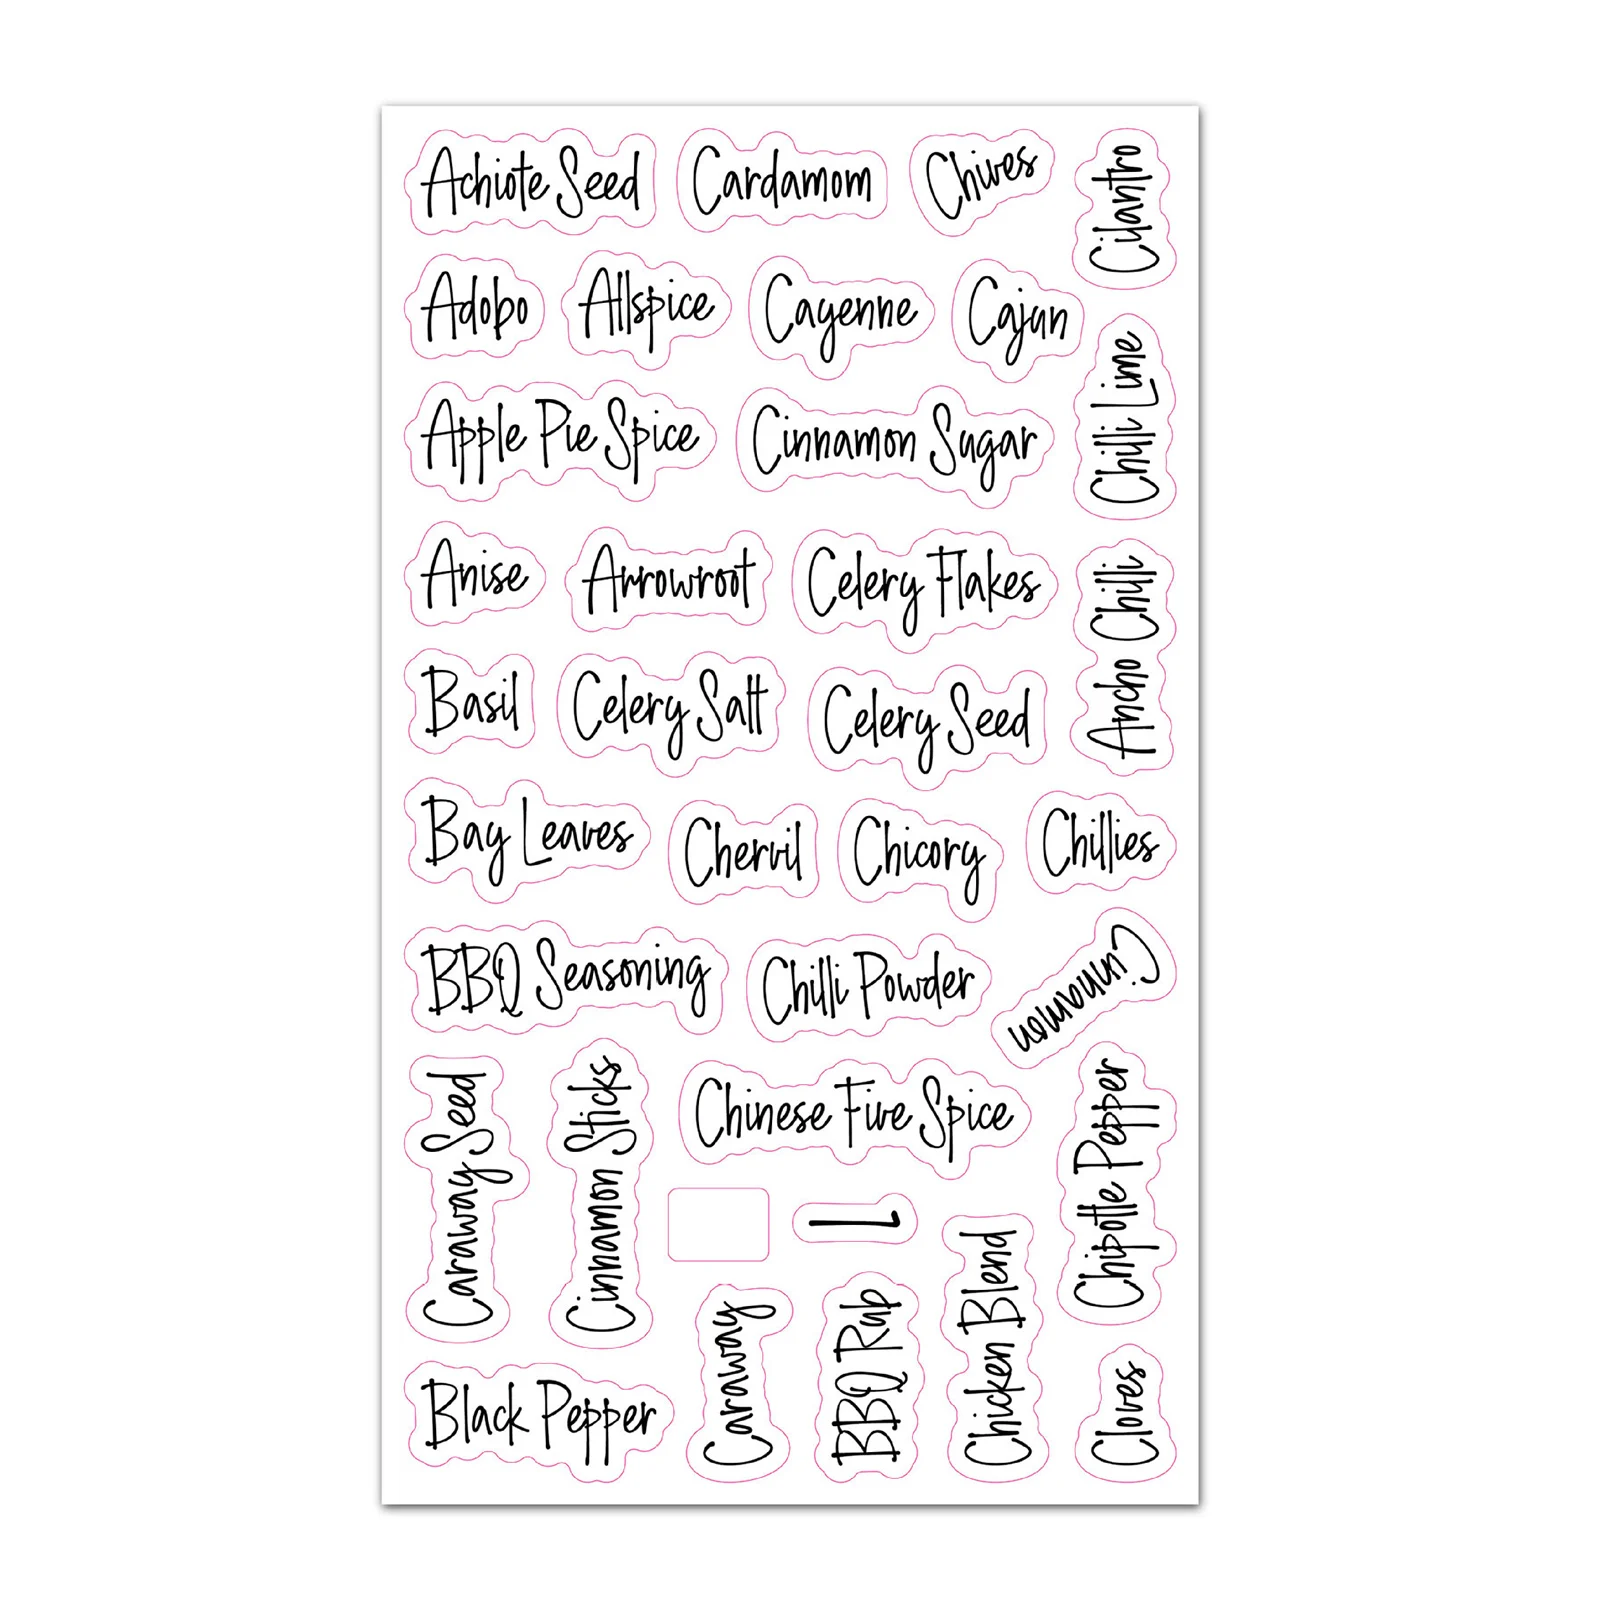 Achiote Seed
Cardamom
Chives
Cilantro
Adobo
Allspice
Cayenne
Cajun
Apple Pie Spice
Cinnamon Sugar
Chilli Lime
Anise
Arrowroot
Celery Flakes
Ancho Chilli
Basil
Celery Salt
Celery Seed
Bay Leaves
Chervil
Chicory
Chillies
BBQ Seasoning
Chilli Powder
Cinnamon
Caraway Seed
Cinnamon Sticks
Chinese Five Spice
Chipotle Pepper
1
Black Pepper
Caraway
BBQ Rub
Chicken Blend
Cloves